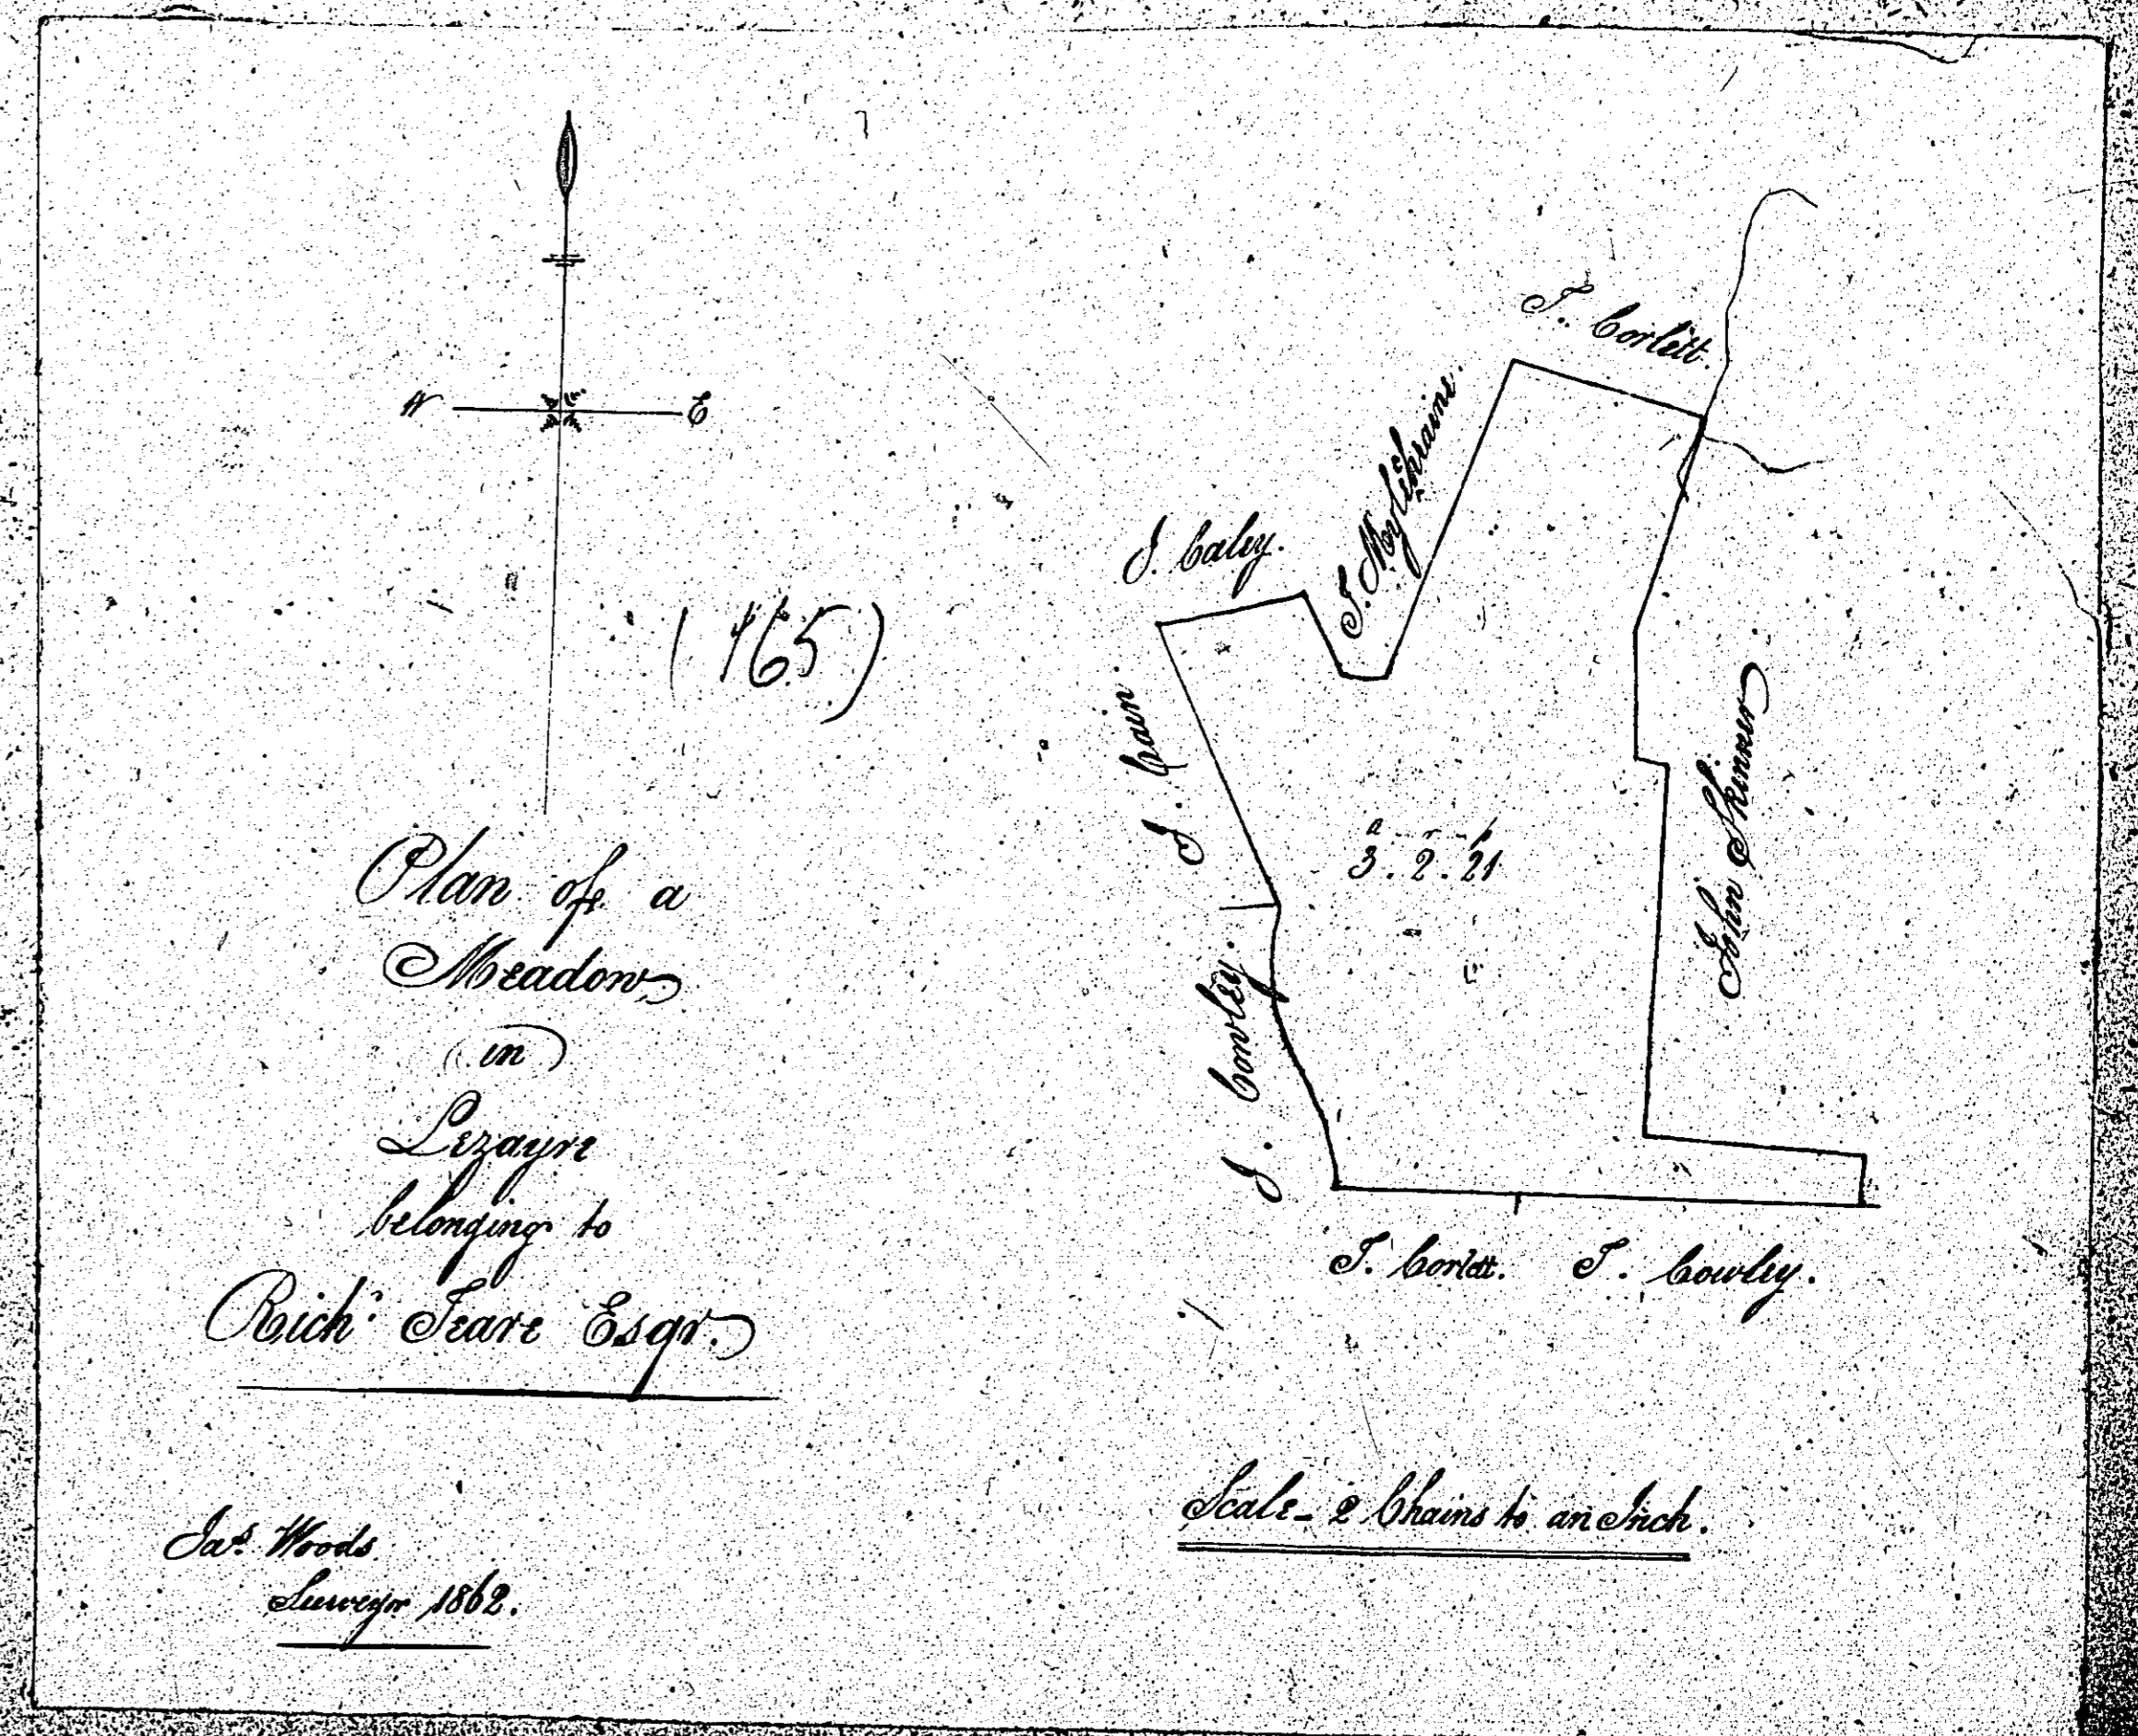 W E
(165)
Plan of a
Meadow
in
Lezayre
belonging to
Rich.d Teare Esqr.
Jas. Woods
Surveyor 1862.
T. Corlett.
J. Mylchraine.
J. Caley.
J. Cain.
a r p
3. 2. 21
John Skinner
J. Cowley.
T. Corlett. T. Cowley.
Scale - 2 Chains to an Inch.